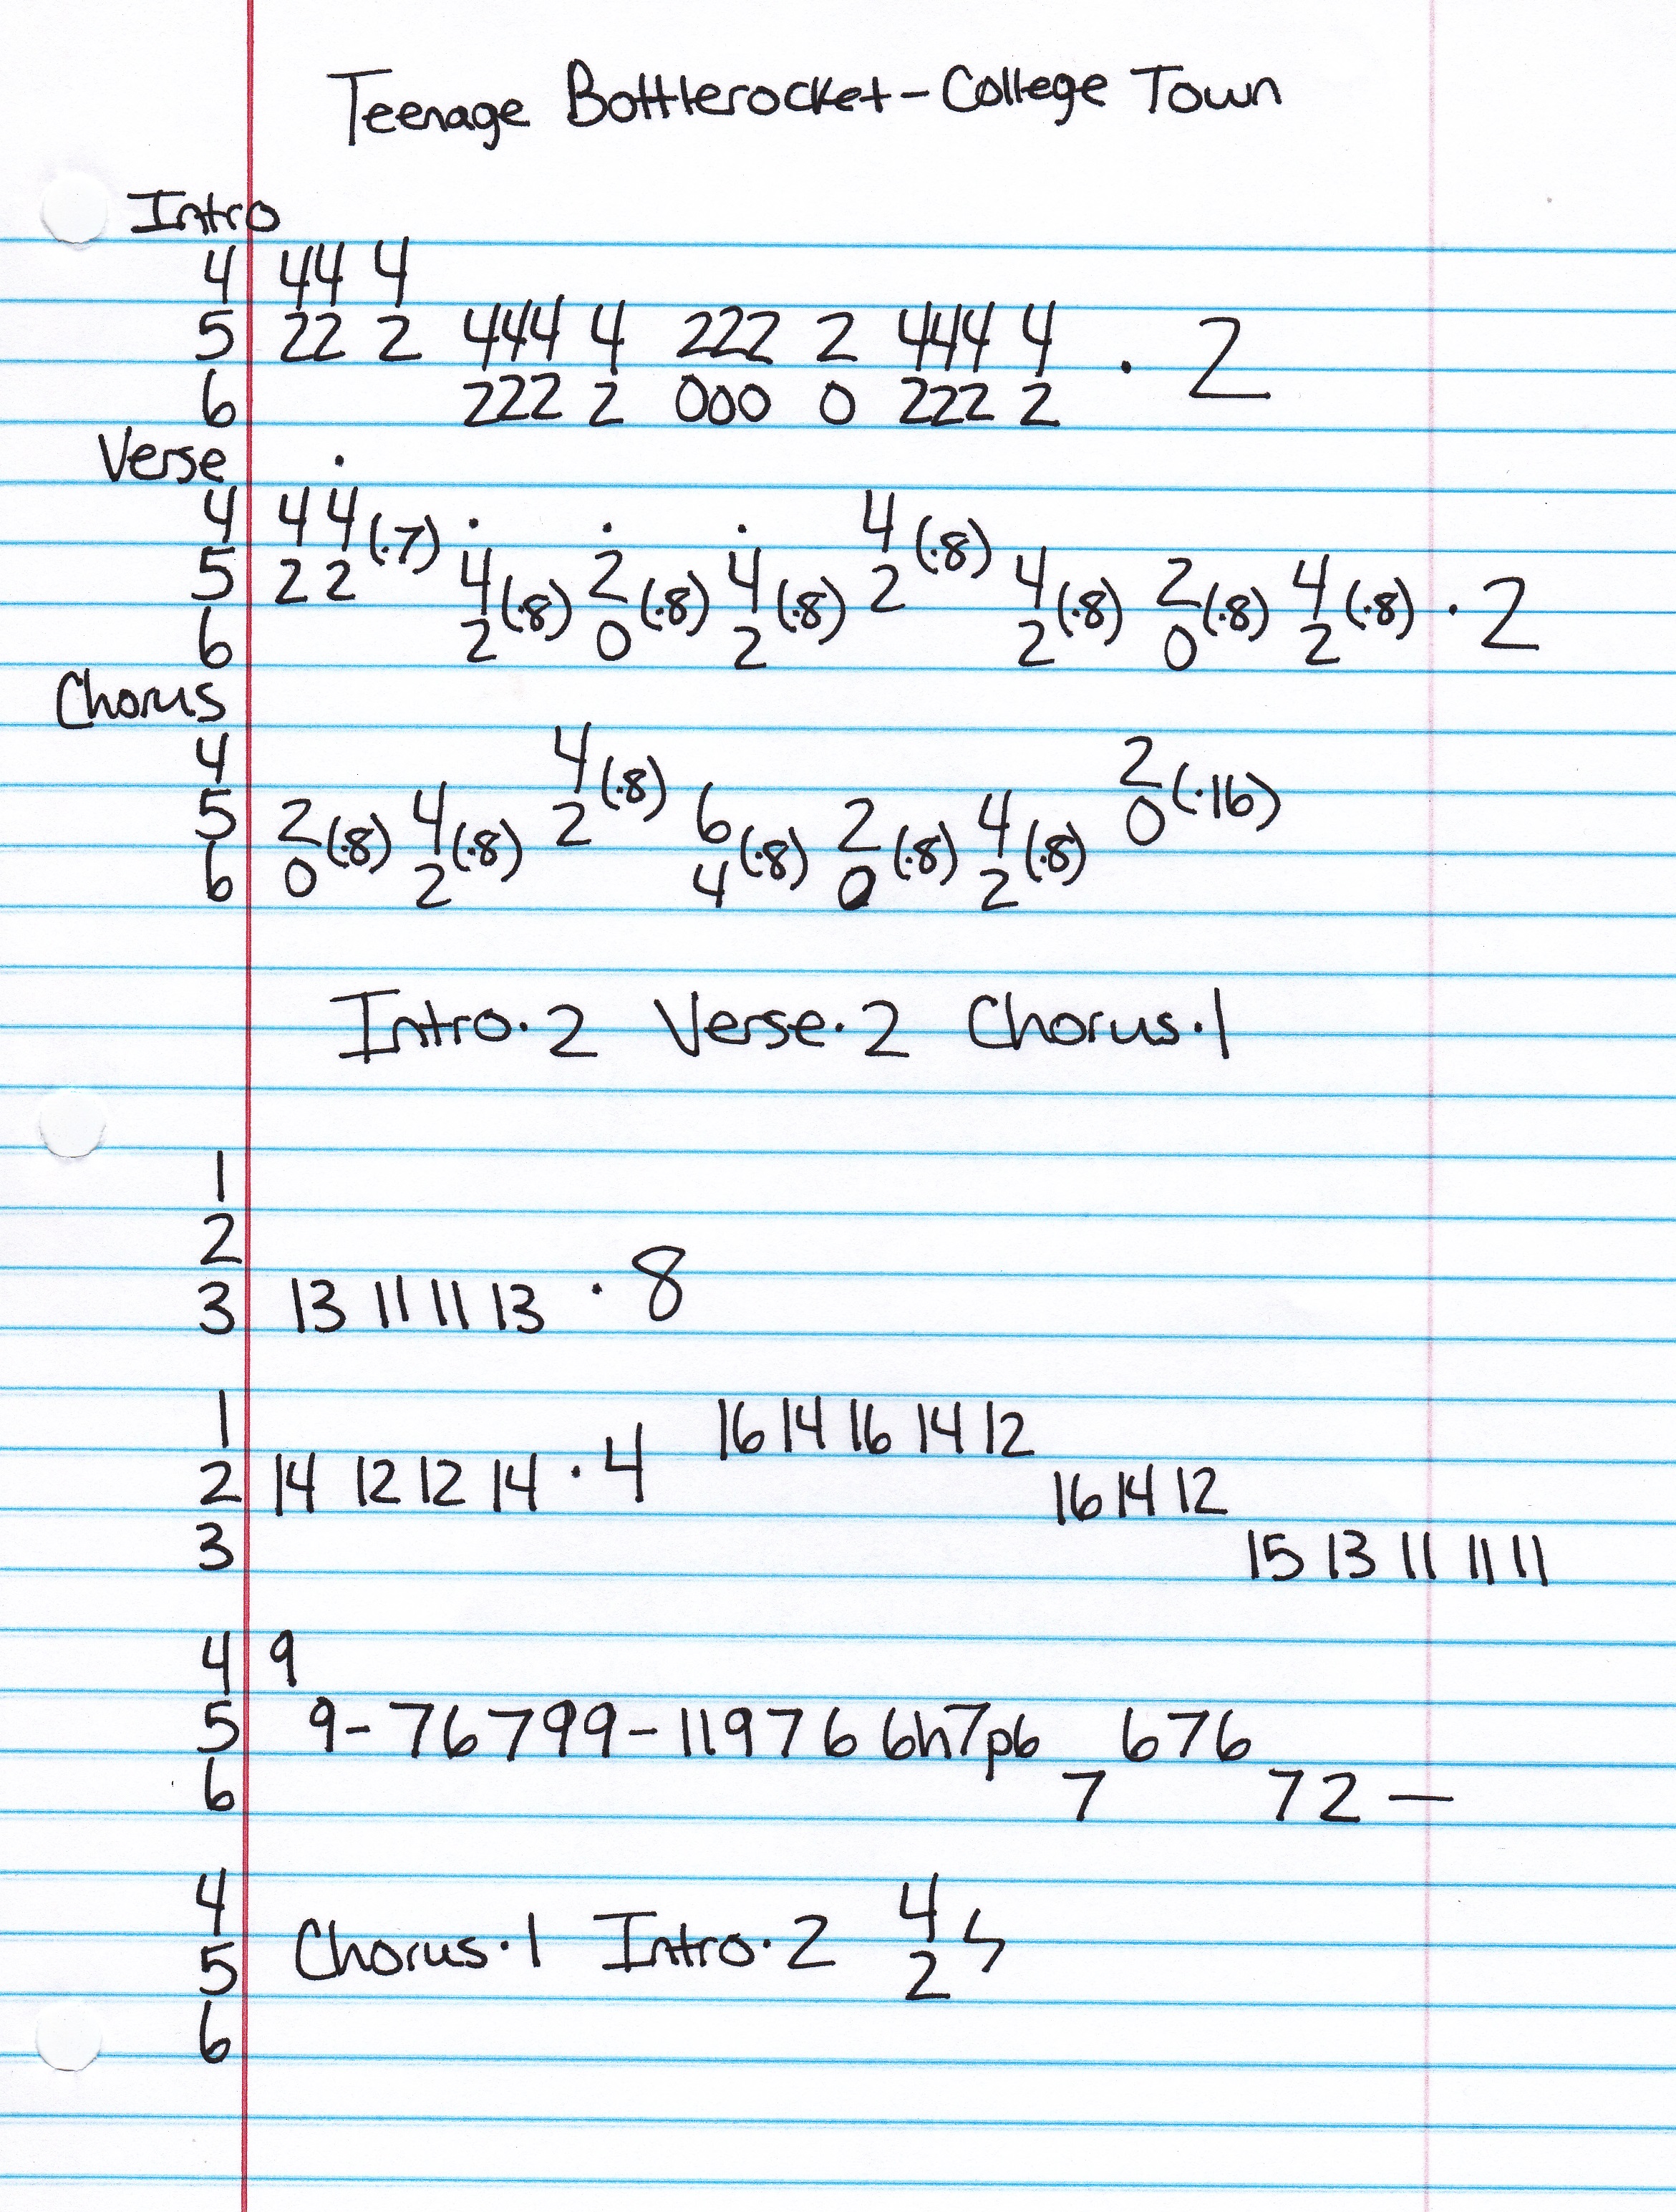 Teenage Bottlerocket - College Town
Intro
4 44 4
5 22 2 444 4 222 2 444 4 · 2
6 222 2 000 0 222 2
Verse
4 4 4 (·7) 4 (·8)
5 2 2 4 (·8) 2 (·8) 4 (·8) 2 4 (·8) 2 (·8) 4 (·8) · 2
6 2 0 2 2 0 2
Chorus
4 4 (·8) 2 (·16)
5 2 (·8) 4 (·8) 2 6 (·8) 2 (·8) 4 (·8) 0
6 0 2 4 0 2
Intro·2 Verse·2 Chorus·1
1
2
3 13 11 11 13 · 8
1 16 14 16 14 12
2 14 12 12 14 · 4 16 14 12
3 15 13 11 11 11
4 9
5 9 - 7 6 7 9 9 - 11 9 7 6 6h7p6 6 7 6
6 7 7 2 —
4 4
5 Chorus·1 Intro·2 2
6